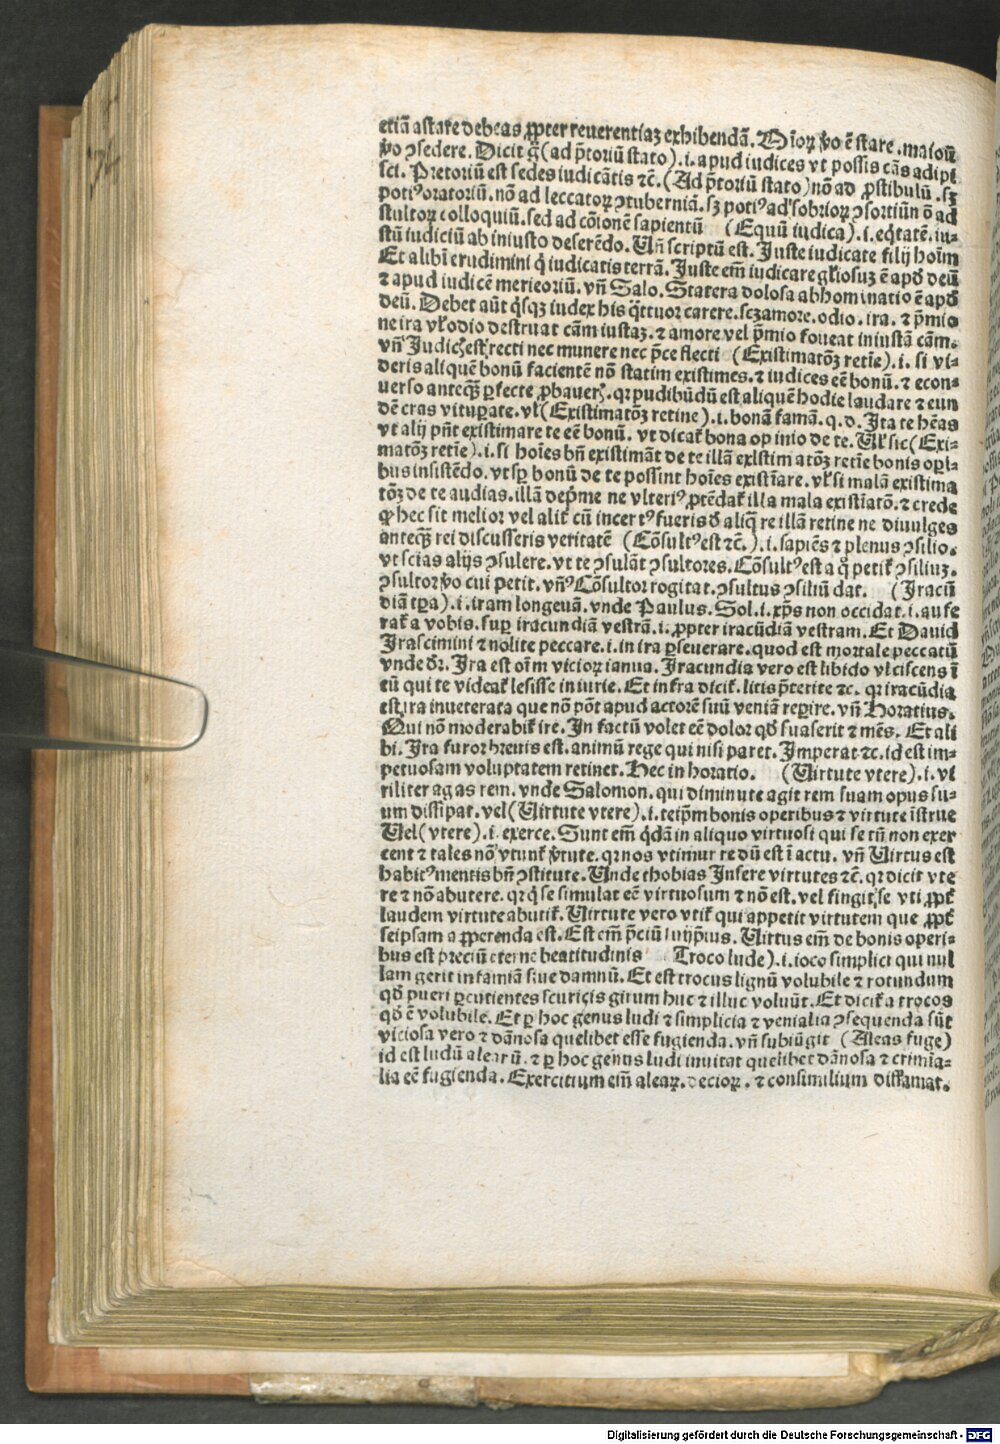 etiã astare debeas ꝓpter reuerentiaʒ exhibendã. Miorꝝ ṽo ẽ stare. maioꝝ
ṽo ꝯsedere. Dicit gͥ (ad p̃toriũ stato).i. apud iudices vt possis cãs adipi
sci. Pretoriũ est sedes iudicãtis ⁊c̃. (Ad p̃toriũ stato) nõ ad ꝓstibulũ. sʒ
potiꝰ oratoriũ. nõ ad leccatoꝝ ꝯtuberniã. sʒ potiꝰ ad sobrioꝝ ꝯsortiũ nõ ad
stultoꝝ colloquiũ. sed ad cõionẽ sapientũ (Equũ iudica).i. eq̃tatẽ. iu-
stũ iudiciũ ab iniusto deserẽdo. Vñ scriptũ est. Juste iudicate filij hoĩm
Et alibi erudimini q̃ iudicatis terrã. Juste em̃ iudicare gl̃iosuʒ ẽ apđ deũ
⁊ apud iudicẽ meritoriũ. vñ Salo. Statera dolosa abhominatio ẽ apđ
deũ. Debet aũt q̃sqʒ iudex his q̃ttuor carere. scʒ amore. odio. ira. ⁊ p̃mio
ne ira vl̃ odio destruat cãm iustaʒ. ⁊ amore vel p̃mio foueat iniustã cãm.
vñ Judicis est recti nec munere nec p̃ce flecti (Existimatõʒ retĩe).i. si vi-
deris aliquẽ bonũ facientẽ nõ statim existimes. ⁊ iudices eẽ bonũ. ⁊ econ-
uerso anteqʒ̃ ꝑfecte ꝓbaueris. qꝛ pudibũdũ est aliquẽ hodie laudare ⁊ eun
dẽ cras vituꝑare. vl̃ (Existimatõʒ retine).i. bonã famã. q.d. Jta te hẽas
vt alij pñt existimare te eẽ bonũ. vt dicat̃ bona opinio de te. Vl̃ sic (Exi-
matõʒ retĩe).i. si hoĩes bñ existimãt de te illã existimatõʒ retĩe bonis oꝑi-
bus insistẽdo. vt sꝑ bonũ de te possint hoĩes existĩare. vl̃ si malã existima
tõʒ de te audias. illã dep̃me ne vlteriꝰ ꝓtẽdat̃ illa mala existĩatõ. ⁊ crede
ꝙ hec sit melior vel alit̃ cũ incertꝰ fueris đ aliq̃ re illã retine ne diuulges
anteqʒ̃ rei discusseris veritatẽ (Cõsultꝰ est ⁊c̃.).i. sapiẽs ⁊ plenus ꝯsilio.
vt scias alijs ꝯsulere. vt te ꝯsulãt ꝯsultores. Cõsultꝰ est a q̃ petit̃ ꝯsiliuʒ.
ꝯsultor ṽo cui petit. vñꝰ Cõsultor rogitat. ꝯsultus ꝯsiliũ dat. (Jracũ
diã tꝑa).i. iram longeuã. vnde Paulus. Sol.i. xp̃s non occidat.i. aufe
rat̃ a vobis. suꝑ iracundiã vestrã.i. ꝓpter iracũdiã vestram. Et Dauid
Jrascimini ⁊ nolite peccare.i. in ira ꝑseuerare. quod est mortale peccatũ
vnde dr̃. Jra est oĩm vicioꝝ ianua. Jracundia vero est libido vlciscens ĩ
eũ qui te videat̃ lesisse iniurie. Et infra dicit̃. litis p̃terite ⁊c. qꝛ iracũdia
est ira inueterata que nõ põt apud actorẽ suũ veniã reꝑire. vñ Horatius.
Qui nõ moderabit̃ ire. Jn factũ volet eẽ dolor qđ suaserit ⁊ mẽs. Et ali
bi. Jra furor breuis est. animũ rege qui nisi paret. Jmperat ⁊c. id est im-
petuosam voluptatem retinet. Hec in horatio. (Virtute vtere).i. vi
riliter agas rem. vnde Salomon. qui diminute agit rem suam opus su-
um dissipat. vel (Virtute vtere).i. teip̃m bonis operibus ⁊ virtute ĩstrue
Vel (vtere).i. exerce. Sunt em̃ q̃dã in aliquo virtuosi qui se tñ non exer
cent ⁊ tales nõ vtunt̃ ṽtute. qꝛ nos vtimur re dũ est ĩ actu. vñ Virtus est
habitꝰ mentis bñ ꝯstitute. Vnde thobias Jnsere virtutes ⁊c̃. qꝛ dicit vte
re ⁊ nõ abutere. qꝛ q̃ se simulat eẽ virtuosum ⁊ nõ est. vel fingit se vti ꝓpt̃
laudem virtute abutit̃. Virtute vero vtit̃ qui appetit virtutem que ꝓpt̃
seipsam apꝑerenda est. Est em̃ p̃ciũ suijp̃ius. Virtus em̃ de bonis operi-
bus est preciũ eterne beatitudinis Troco lude).i. ioco simplici qui nul
lam gerit infamiã siue damnũ. Et est trocus lignũ volubile ⁊ rotundum
qđ pueri ꝑcutientes scuticis girum huc ⁊ illuc voluũt. Et dicit̃ a trocos
qđ ẽ volubile. Et ꝑ hoc genus ludi ⁊ simplicia ⁊ venialia ꝯsequenda sũt
viciosa vero ⁊ dãnosa quelibet esse fugienda. vñ subiũgit (Aleas fuge)
id est ludũ alearũ. ⁊ ꝑ hoc genus ludi inuitat quelibet dãnosa ⁊ crimĩa-
lia eẽ fugienda. Exercitium em̃ aleaꝝ. decioꝝ. ⁊ consimilium diffamat.
Digitalisierung gefördert durch die Deutsche Forschungsgemeinschaft - DFG